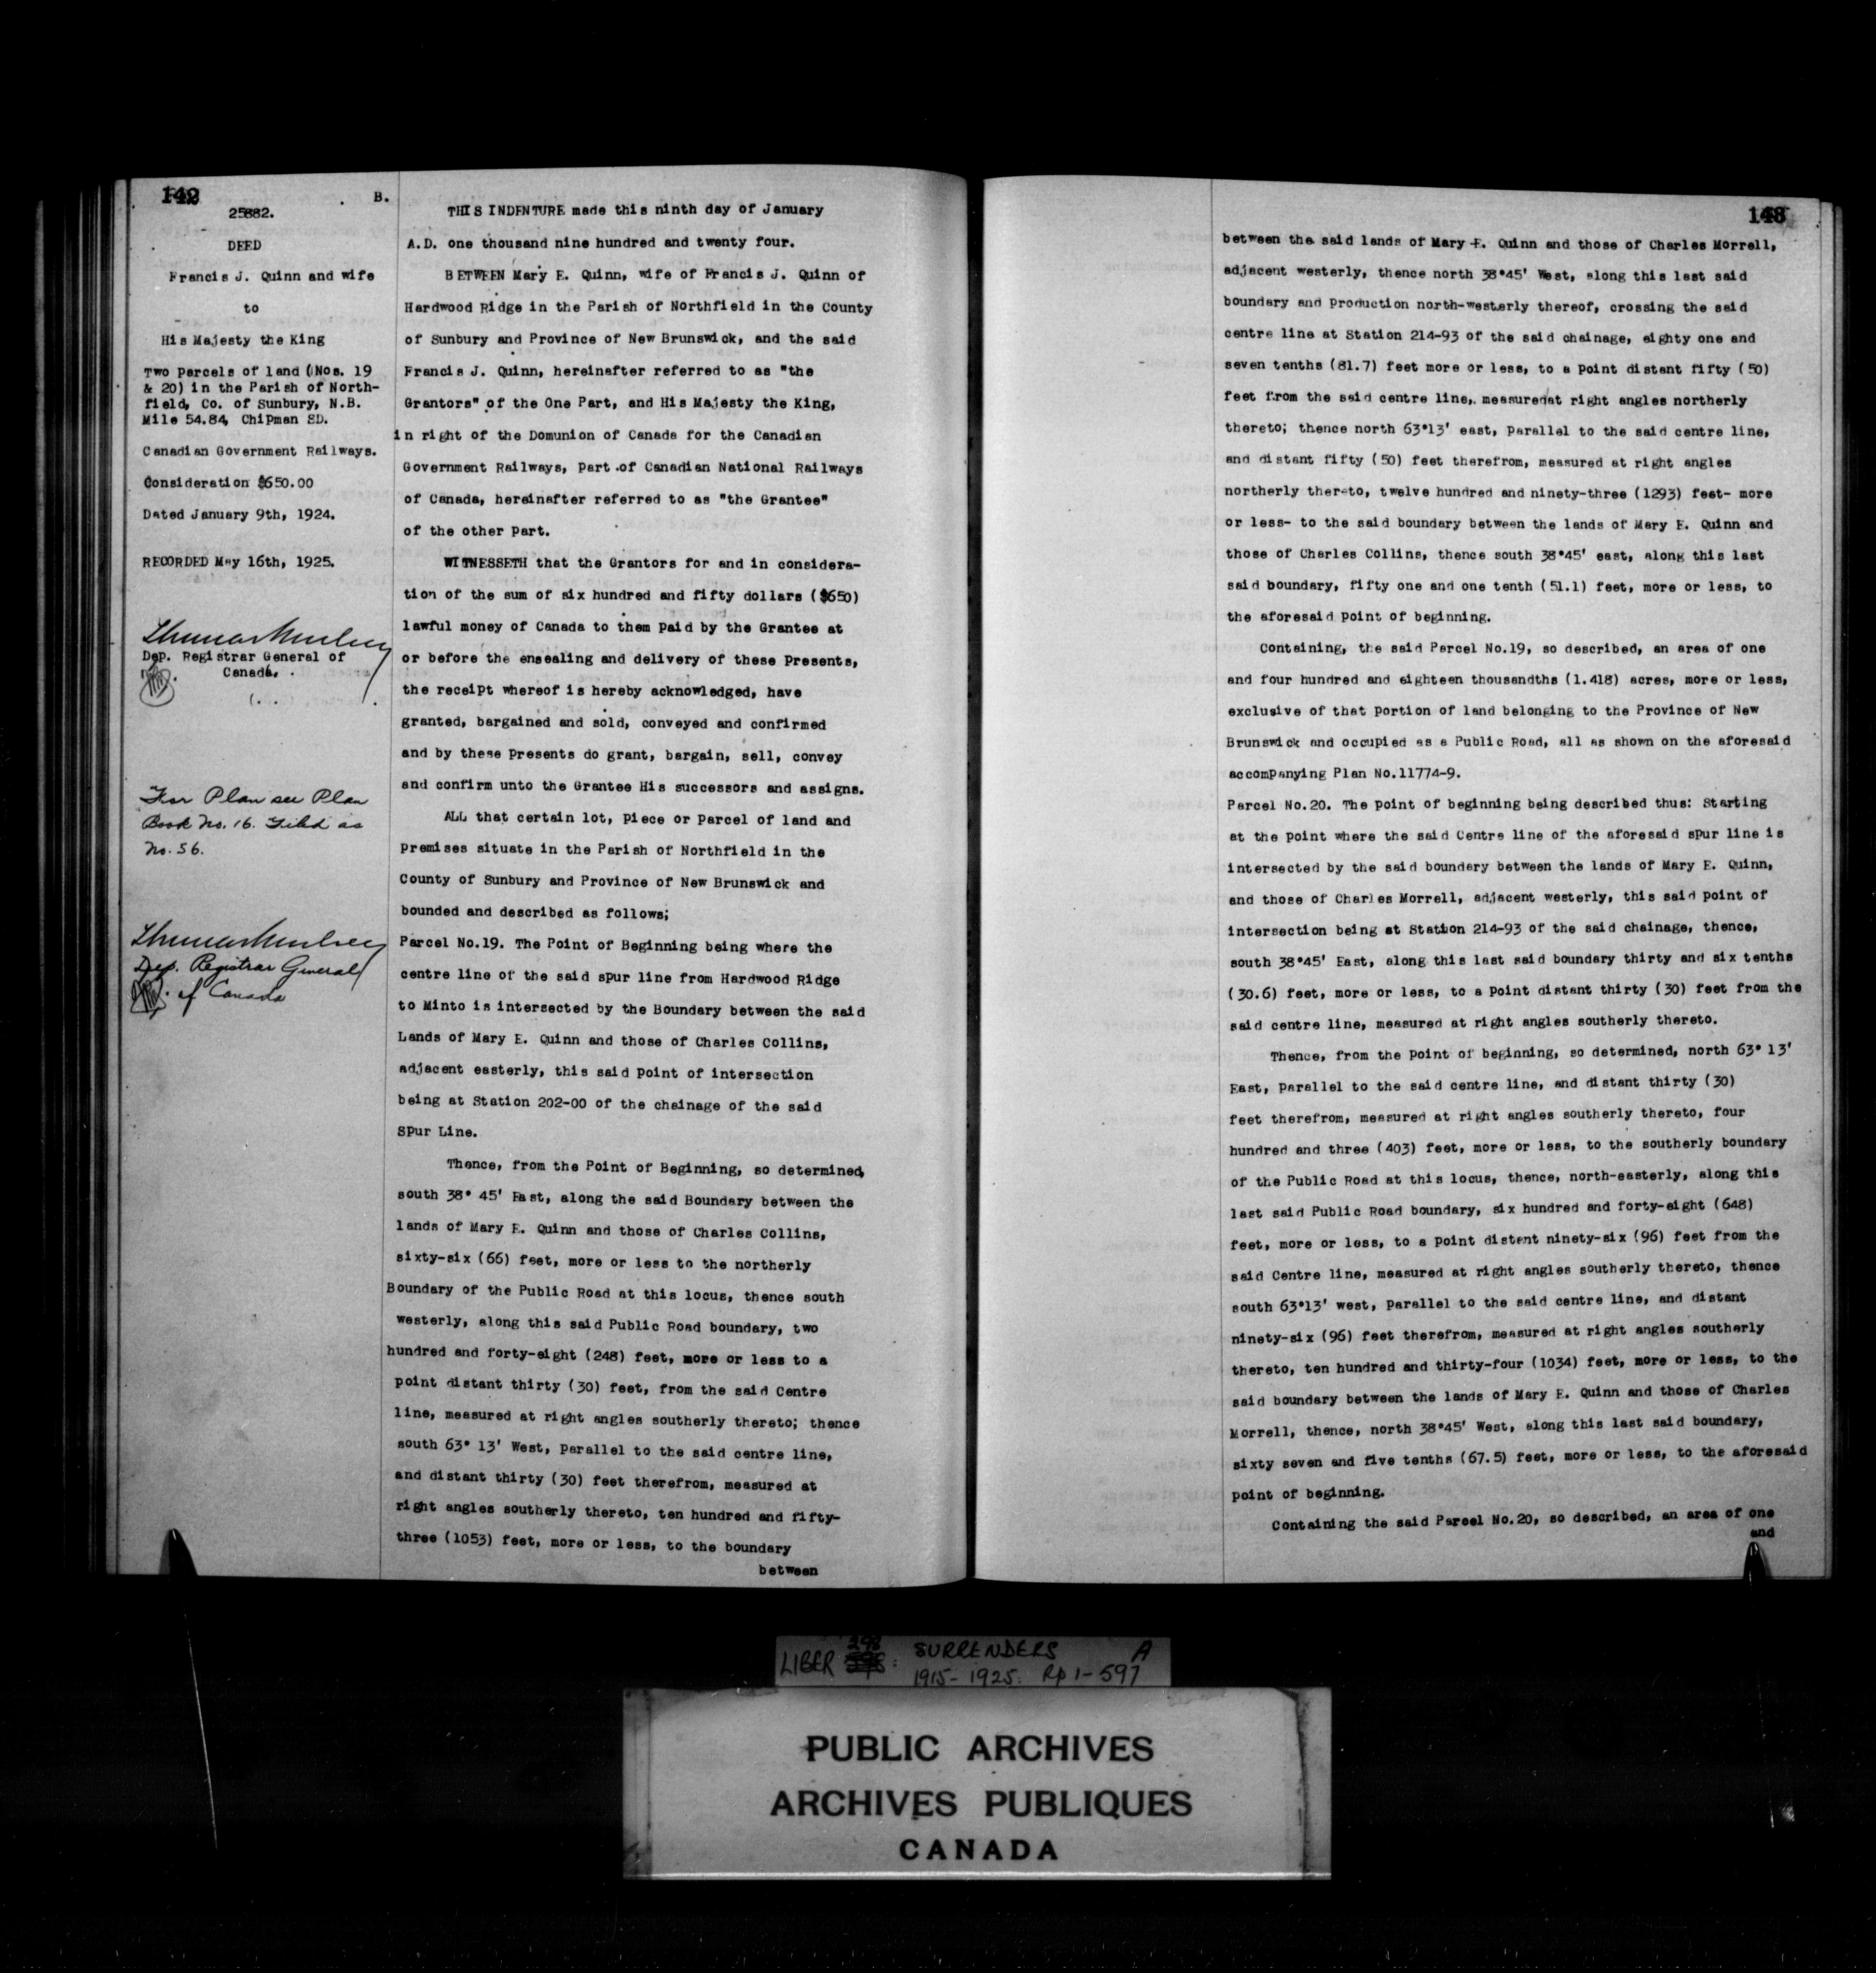 142
B.
25882.
DEED
Francis J. Quinn and wife
to
His Majesty the King
Two parcels of land (Nos. 19
& 20) in the Parish of North-
field, Co. of Sunbury, N.B.
Mile 54.84, Chipman SD.
Canadian Government Railways.
Consideration $650.00
Dated January 9th, 1924.
RECORDED May 16th, 1925.
Dep. Registrar General of
Canada.
For Plan see Plan
Book No. 16. Filed as
No. 56.
Dep. Registrar General
of Canada
THIS INDENTURE made this ninth day of January
A.D. one thousand nine hundred and twenty four.
BETWEEN Mary E. Quinn, wife of Francis J. Quinn of
Hardwood Ridge in the Parish of Northfield in the County
of Sunbury and Province of New Brunswick, and the said
Francis J. Quinn, hereinafter referred to as "the
Grantors" of the One Part, and His Majesty the King,
in right of the Domunion of Canada for the Canadian
Government Railways, part of Canadian National Railways
of Canada, hereinafter referred to as "the Grantee"
of the other part.
WITNESSETH that the Grantors for and in considera-
tion of the sum of six hundred and fifty dollars ($650)
lawful money of Canada to them paid by the Grantee at
or before the ensealing and delivery of these Presents,
the receipt whereof is hereby acknowledged, have
granted, bargained and sold, conveyed and confirmed
and by these presents do grant, bargain, sell, convey
and confirm unto the Grantee His successors and assigns.
ALL that certain lot, piece or parcel of land and
premises situate in the Parish of Northfield in the
County of Sunbury and Province of New Brunswick and
bounded and described as follows;
Parcel No.19. The Point of Beginning being where the
centre line of the said spur line from Hardwood Ridge
to Minto is intersected by the Boundary between the said
Lands of Mary E. Quinn and those of Charles Collins,
adjacent easterly, this said point of intersection
being at Station 202-00 of the chainage of the said
Spur Line.
Thence, from the Point of Beginning, so determined,
south 38° 45' East, along the said Boundary between the
lands of Mary E. Quinn and those of Charles Collins,
sixty-six (66) feet, more or less to the northerly
Boundary of the Public Road at this locus, thence south
westerly, along this said Public Road boundary, two
hundred and forty-eight (248) feet, more or less to a
point distant thirty (30) feet, from the said Centre
line, measured at right angles southerly thereto; thence
south 63° 13' West, parallel to the said centre line,
and distant thirty (30) feet therefrom, measured at
right angles southerly thereto, ten hundred and fifty-
three (1053) feet, more or less, to the boundary
between
143
between the said lands of Mary E. Quinn and those of Charles Morrell,
adjacent westerly, thence north 38°45' West, along this last said
boundary and production north-westerly thereof, crossing the said
centre line at Station 214-93 of the said chainage, eighty one and
seven tenths (81.7) feet more or less, to a point distant fifty (50)
feet from the said centre line, measured at right angles northerly
thereto; thence north 63°13' east, parallel to the said centre line,
and distant fifty (50) feet therefrom, measured at right angles
northerly thereto, twelve hundred and ninety-three (1293) feet- more
or less- to the said boundary between the lands of Mary E. Quinn and
those of Charles Collins, thence south 38°45' east, along this last
said boundary, fifty one and one tenth (51.1) feet, more or less, to
the aforesaid point of beginning.
Containing, the said Parcel No.19, so described, an area of one
and four hundred and eighteen thousandths (1.418) acres, more or less,
exclusive of that portion of land belonging to the Province of New
Brunswick and occupied as a Public Road, all as shown on the aforesaid
accompanying Plan No.11774-9.
Parcel No.20. The point of beginning being described thus: Starting
at the point where the said Centre line of the aforesaid spur line is
intersected by the said boundary between the lands of Mary E. Quinn,
and those of Charles Morrell, adjacent westerly, this said point of
intersection being at Station 214-93 of the said chainage, thence,
south 38°45' East, along this last said boundary thirty and six tenths
(30.6) feet, more or less, to a point distant thirty (30) feet from the
said centre line, measured at right angles southerly thereto.
Thence, from the point of beginning, so determined, north 63° 13'
East, parallel to the said centre line, and distant thirty (30)
feet therefrom, measured at right angles southerly thereto, four
hundred and three (403) feet, more or less, to the southerly boundary
of the Public Road at this locus, thence, north-easterly, along this
last said Public Road boundary, six hundred and forty-eight (648)
feet, more or less, to a point distant ninety-six (96) feet from the
said Centre line, measured at right angles southerly thereto, thence
south 63°13' west, parallel to the said centre line, and distant
ninety-six (96) feet therefrom, measured at right angles southerly
thereto, ten hundred and thirty-four (1034) feet, more or less, to the
said boundary between the lands of Mary E. Quinn and those of Charles
Morrell, thence, north 38°45' West, along this last said boundary,
sixty seven and five tenths (67.5) feet, more or less, to the aforesaid
point of beginning.
Containing the said Parcel No.20, so described, an area of one
and
LIBER 298: SURRENDERS A
1915-1925. Pp 1-597
PUBLIC ARCHIVES
ARCHIVES PUBLIQUES
CANADA